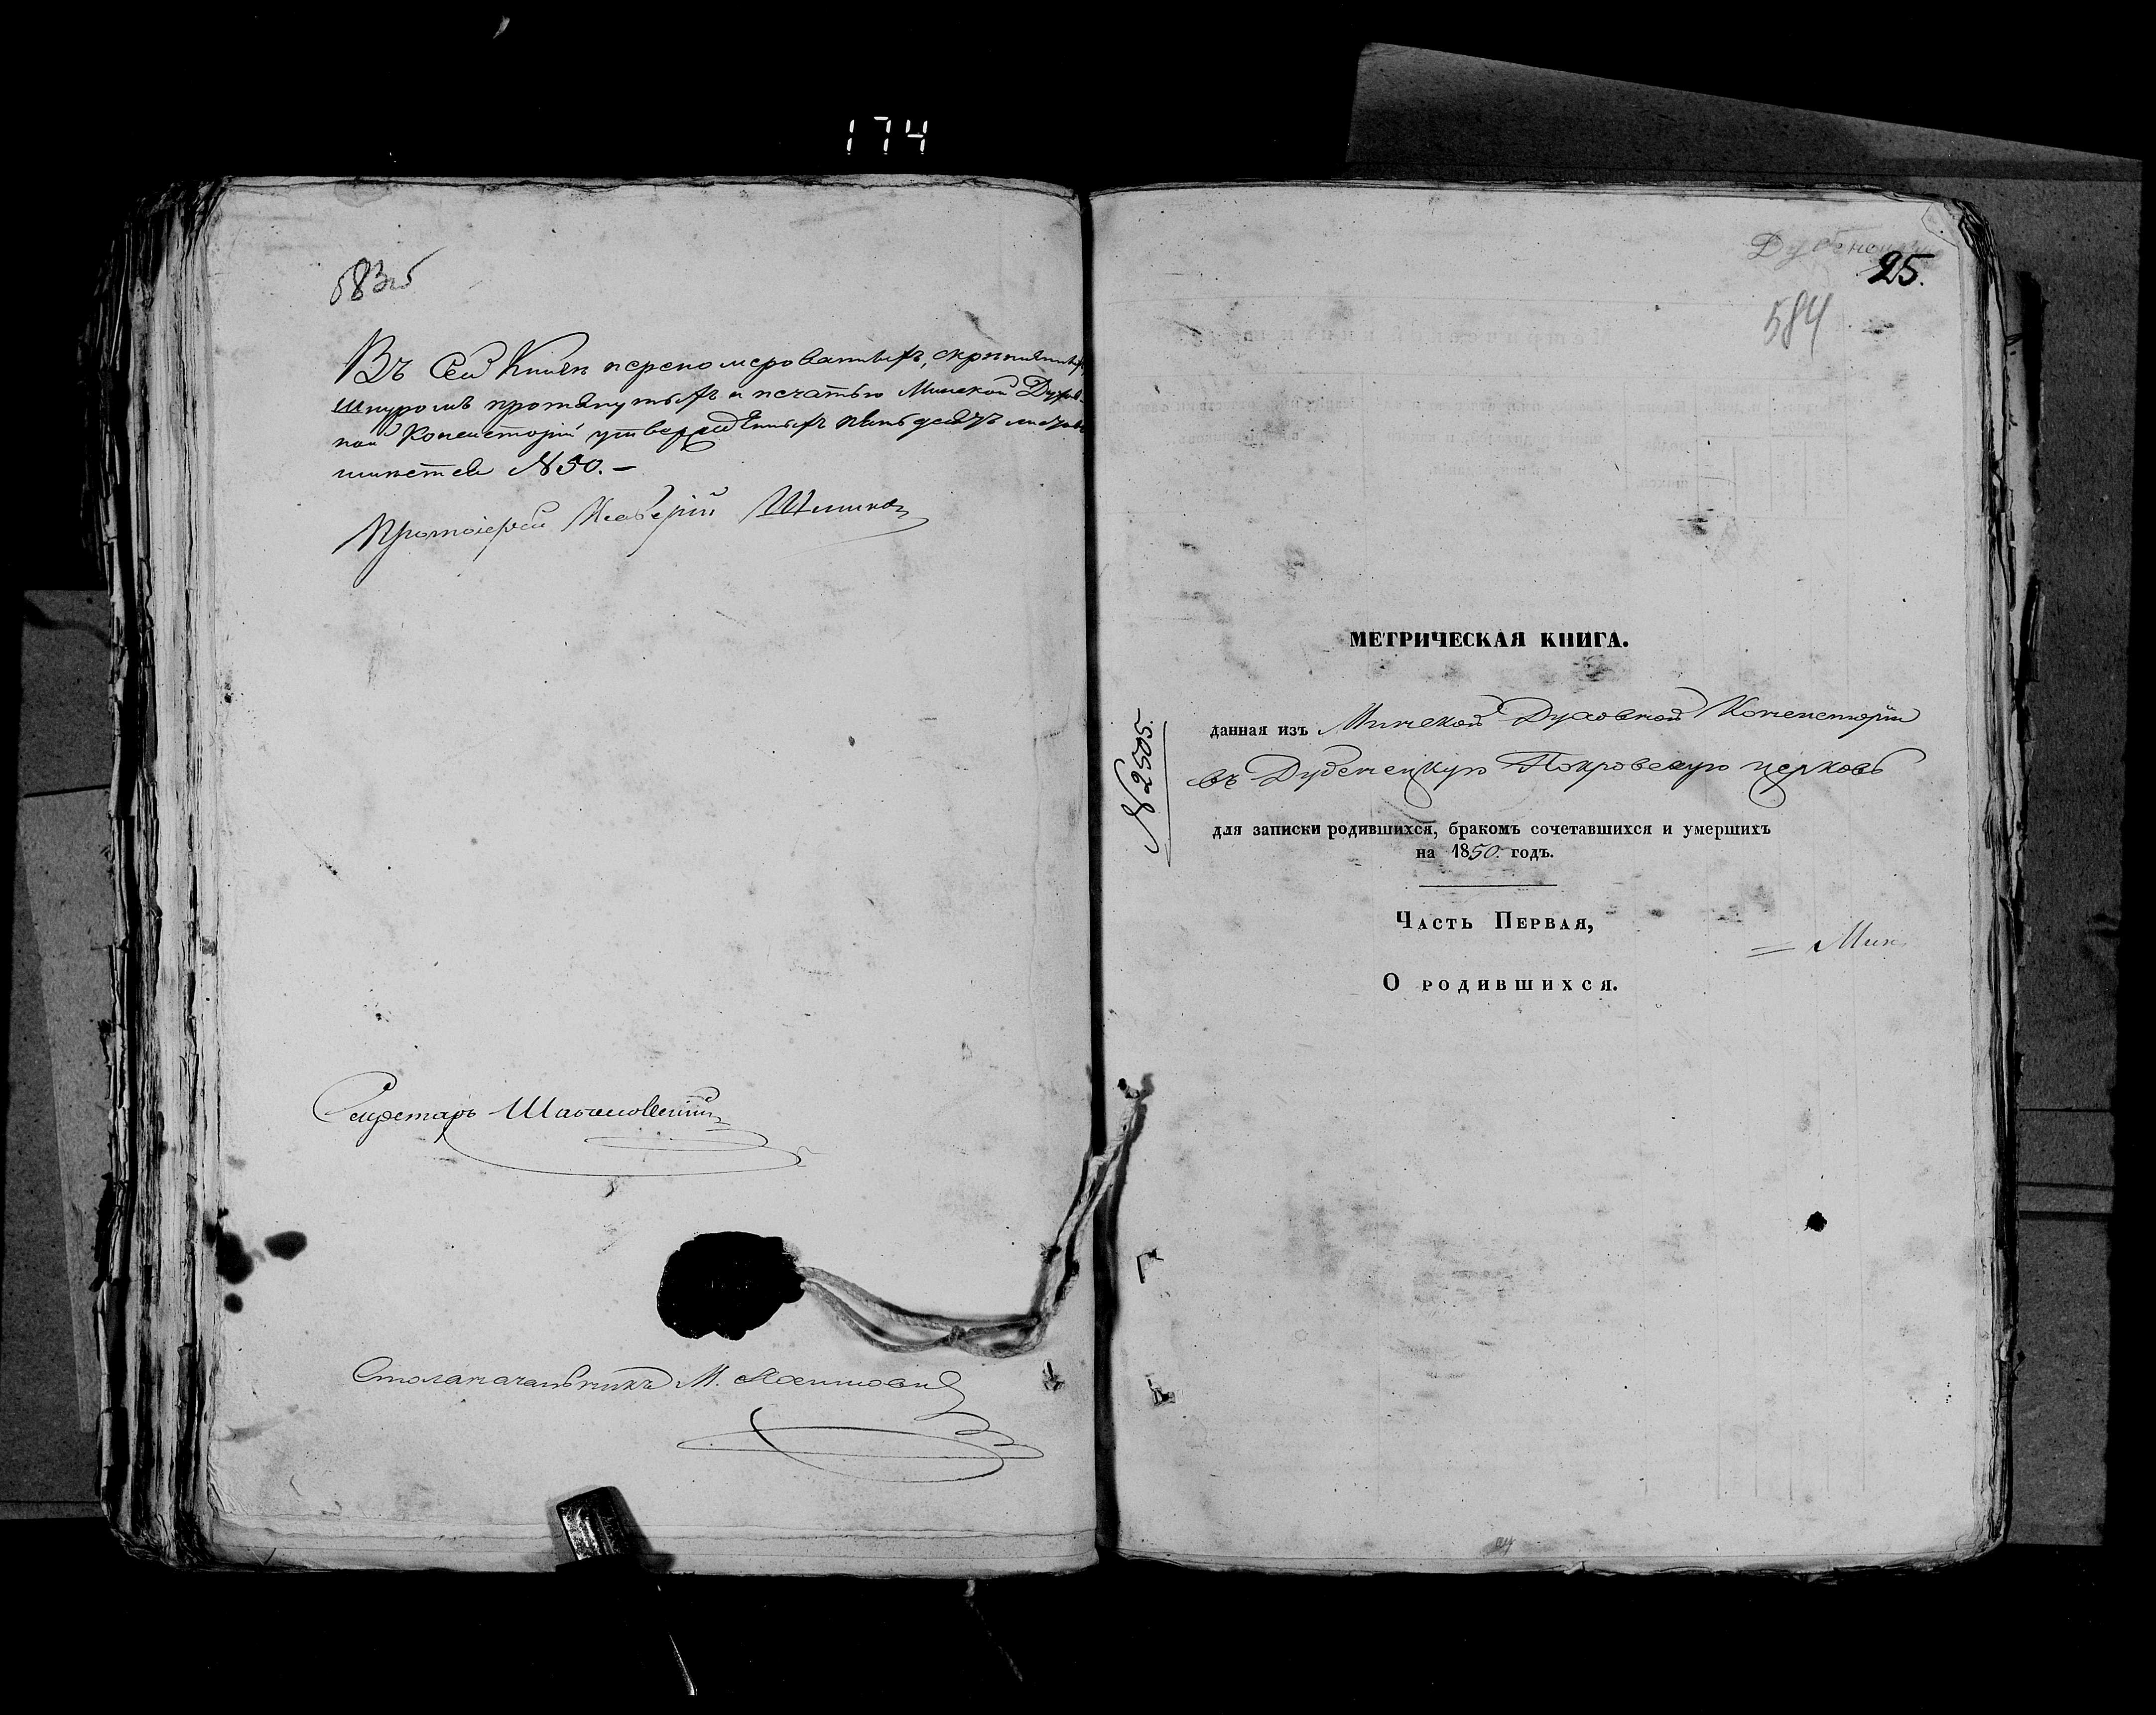 174
583об
Въ Сей Книгѣ перенумерованныхъ, скрѣпленныхъ,
шнуромъ протянутыхъ и печатью Минской Духов-
ной Консисторіи утвержденныхъ пятьдесятъ листовъ
имѣется №50.—
Протоіерей
Секретарь
Столоначальникъ М.
25.
584
МЕТРИЧЕСКАЯ КНИГА.
№2505.
данная изъ Минской Духовной Консисторіи
въ Дуденецкую Покровскую церковь
для записки родившихся, бракомъ сочетавшихся и умершихъ
на 1850. годъ.
Часть Первая,
О родившихся.